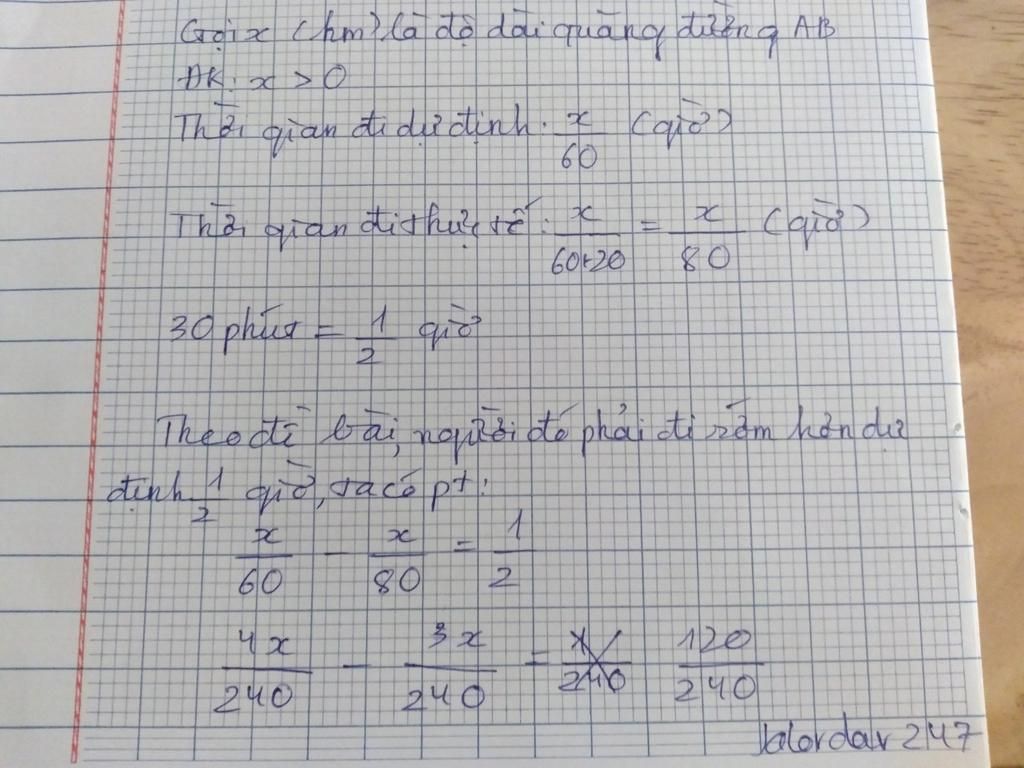 Gọi x (km) là độ dài quãng đường AB
ĐK: x > 0
Thời gian đi dự định: x/60 (giờ)
Thời gian đi thực tế: x/(60+20) = x/80 (giờ)
30 phút = 1/2 giờ
Theo đề bài, người đó phải đi sớm hơn dự
định 1/2 giờ, ta có pt:
x/60 - x/80 = 1/2
4x/240 - 3x/240 = 120/240